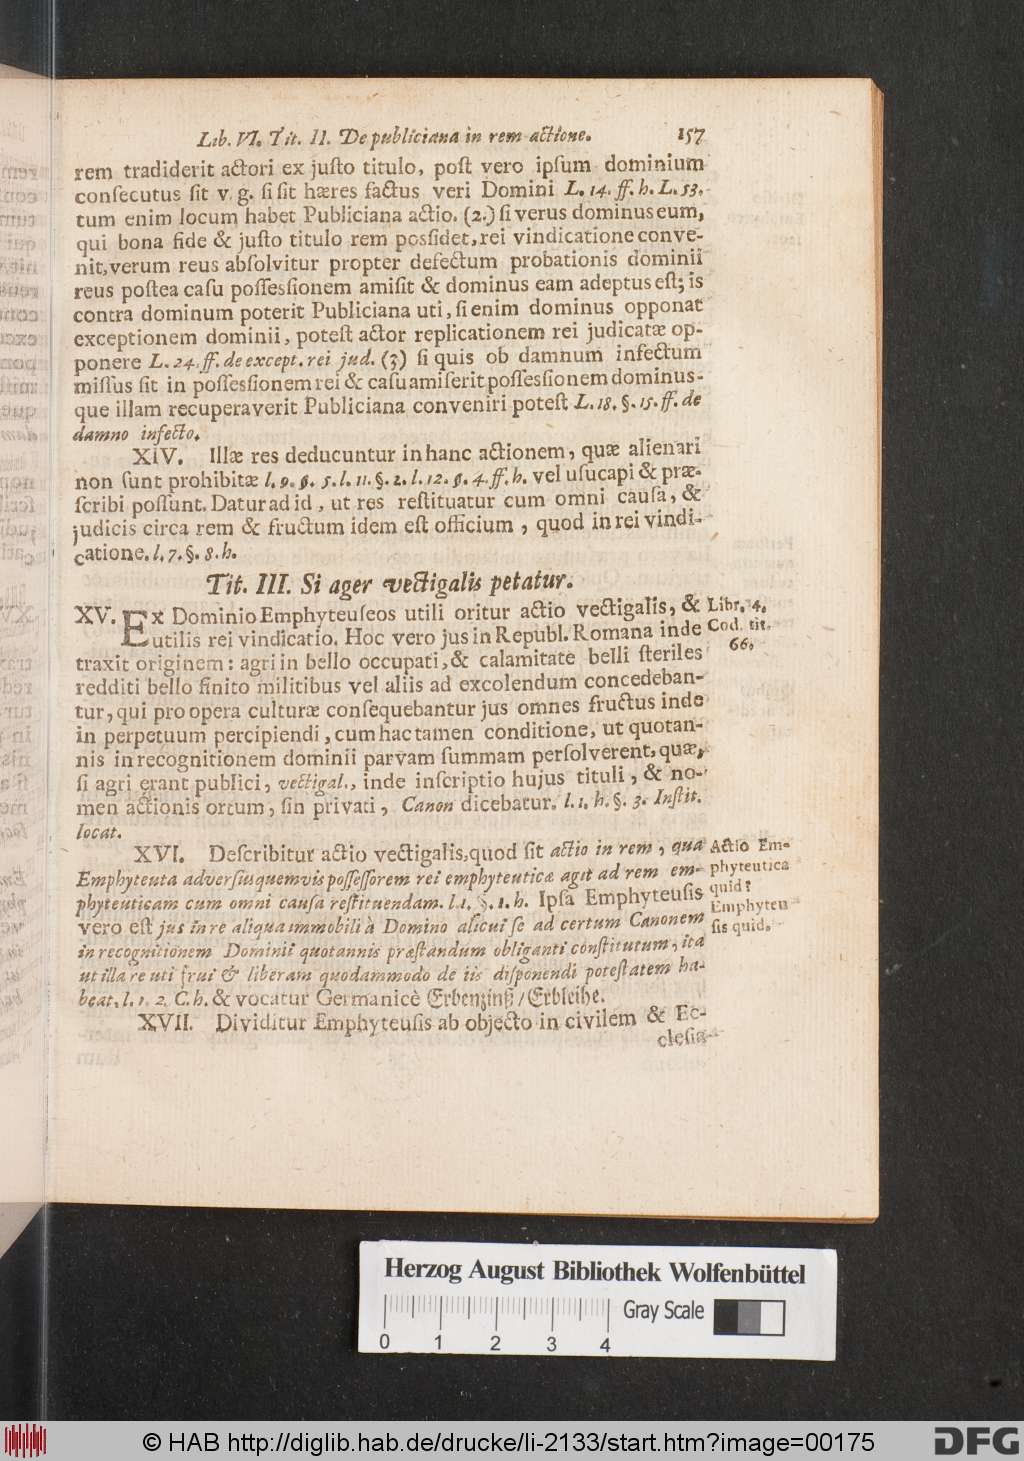 Lib. VI. Tit. II. De publiciana in rem actione. 157
rem tradiderit actori ex juſto titulo, poſt vero ipſum dominium
conſecutus ſit v. g. ſi ſit hæres factus veri Domini L. 14. ff. h. L. 53.
tum enim locum habet Publiciana actio. (2.) ſi verus dominus eum,
qui bona fide & juſto titulo rem posſidet, rei vindicatione conve-
nit, verum reus abſolvitur propter defectum probationis dominii
reus poſtea caſu poſſesſionem amiſit & dominus eam adeptus eſt; is
contra dominum poterit Publiciana uti, ſi enim dominus opponat
exceptionem dominii, poteſt actor replicationem rei judicatæ op-
ponere L. 24. ff. de except. rei jud. (3) ſi quis ob damnum infectum
miſſus ſit in poſſesſionem rei & caſu amiſerit poſſesſionem dominus-
que illam recuperaverit Publiciana conveniri poteſt L. 18. §. 15. ff. de
damno infecto.
XIV. Illæ res deducuntur in hanc actionem, quæ alienari
non ſunt prohibitæ l. 9. §. 5. l. 11. §. 2. l. 12. §. 4. ff. h. vel uſucapi & præ-
ſcribi poſſunt. Datur ad id, ut res reſtituatur cum omni cauſa, &
judicis circa rem & fructum idem eſt officium, quod in rei vindi-
catione. l. 7. §. 8. h.
Tit. III. Si ager vectigalis petatur.
XV. Ex Dominio Emphyteuſeos utili oritur actio vectigalis, &
utilis rei vindicatio. Hoc vero jus in Republ. Romana inde
traxit originem: agri in bello occupati, & calamitate belli ſteriles
redditi bello finito militibus vel aliis ad excolendum concedeban-
tur, qui pro opera culturæ conſequebantur jus omnes fructus inde
in perpetuum percipiendi, cum hac tamen conditione, ut quotan-
nis in recognitionem dominii parvam ſummam perſolverent, quæ,
ſi agri erant publici, vectigal., inde inſcriptio hujus tituli, & no-
men actionis ortum, ſin privati, Canon dicebatur. l. 1. h. §. 3. Inſtit.
locat.
Libr. 4.
Cod. tit.
66.
XVI. Deſcribitur actio vectigalis, quod ſit actio in rem, qua
Emphyteuta adverſus quemvis poſſeſſorem rei emphyteuticæ agit ad rem em-
phyteuticam cum omni cauſa reſtituendam. l. 1. §. 1. h. Ipſa Emphyteuſis
vero eſt jus in re aliqua immobili à Domino alicui ſe ad certum Canonem
in recognitionem Dominii quotannis præſtandum obliganti conſtitutum, ita
ut illa re uti frui & liberam quodammodo de iis diſponendi poteſtatem ha-
beat. l. 1. 2. C. h. & vocatur Germanicè Erbenzinß / Erbleihe.
Actio Em-
phyteutica
quid?
Emphyteu
ſis quid.
XVII. Dividitur Emphyteuſis ab objecto in civilem & Ec-
cleſia-
Herzog August Bibliothek Wolfenbüttel
Gray Scale
0 1 2 3 4
© HAB http://diglib.hab.de/drucke/li-2133/start.htm?image=00175
DFG